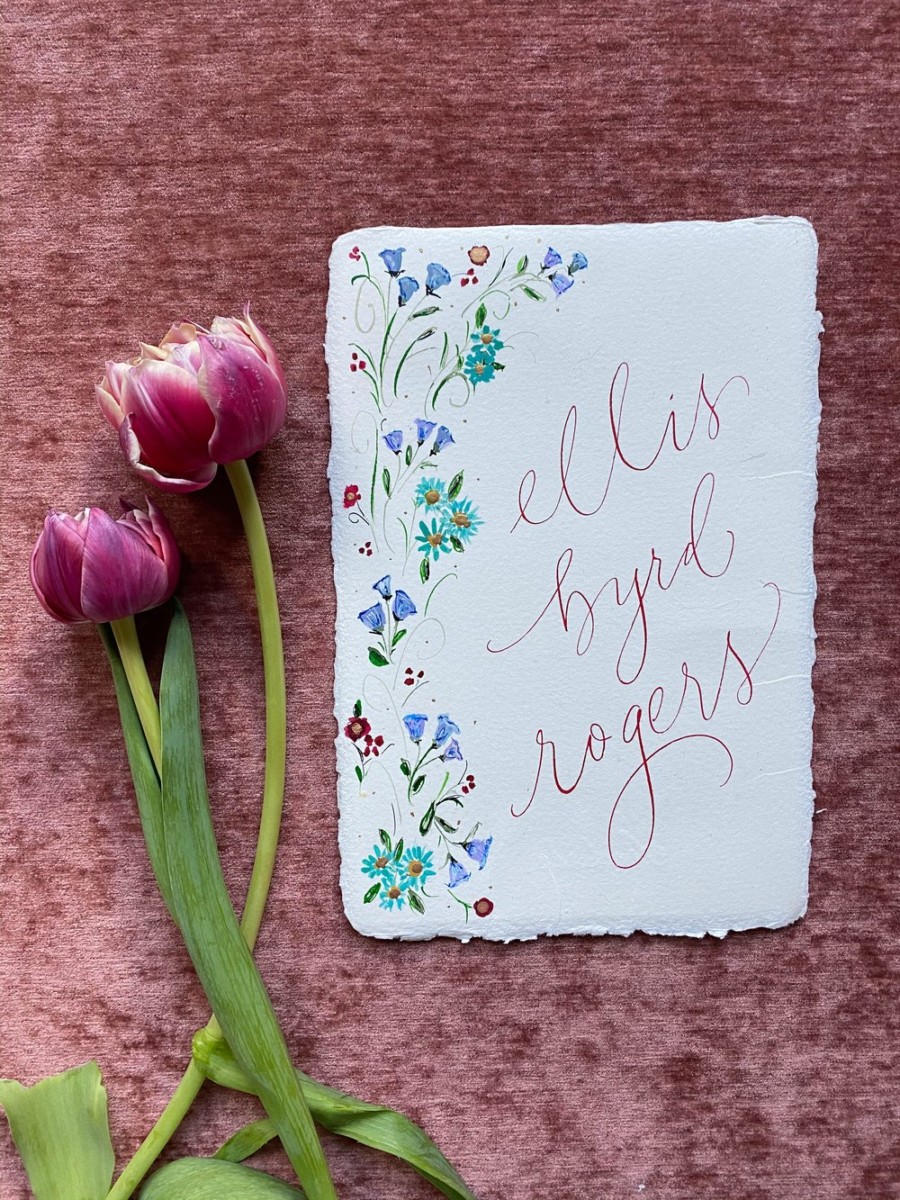 ellis
byrd
rogers